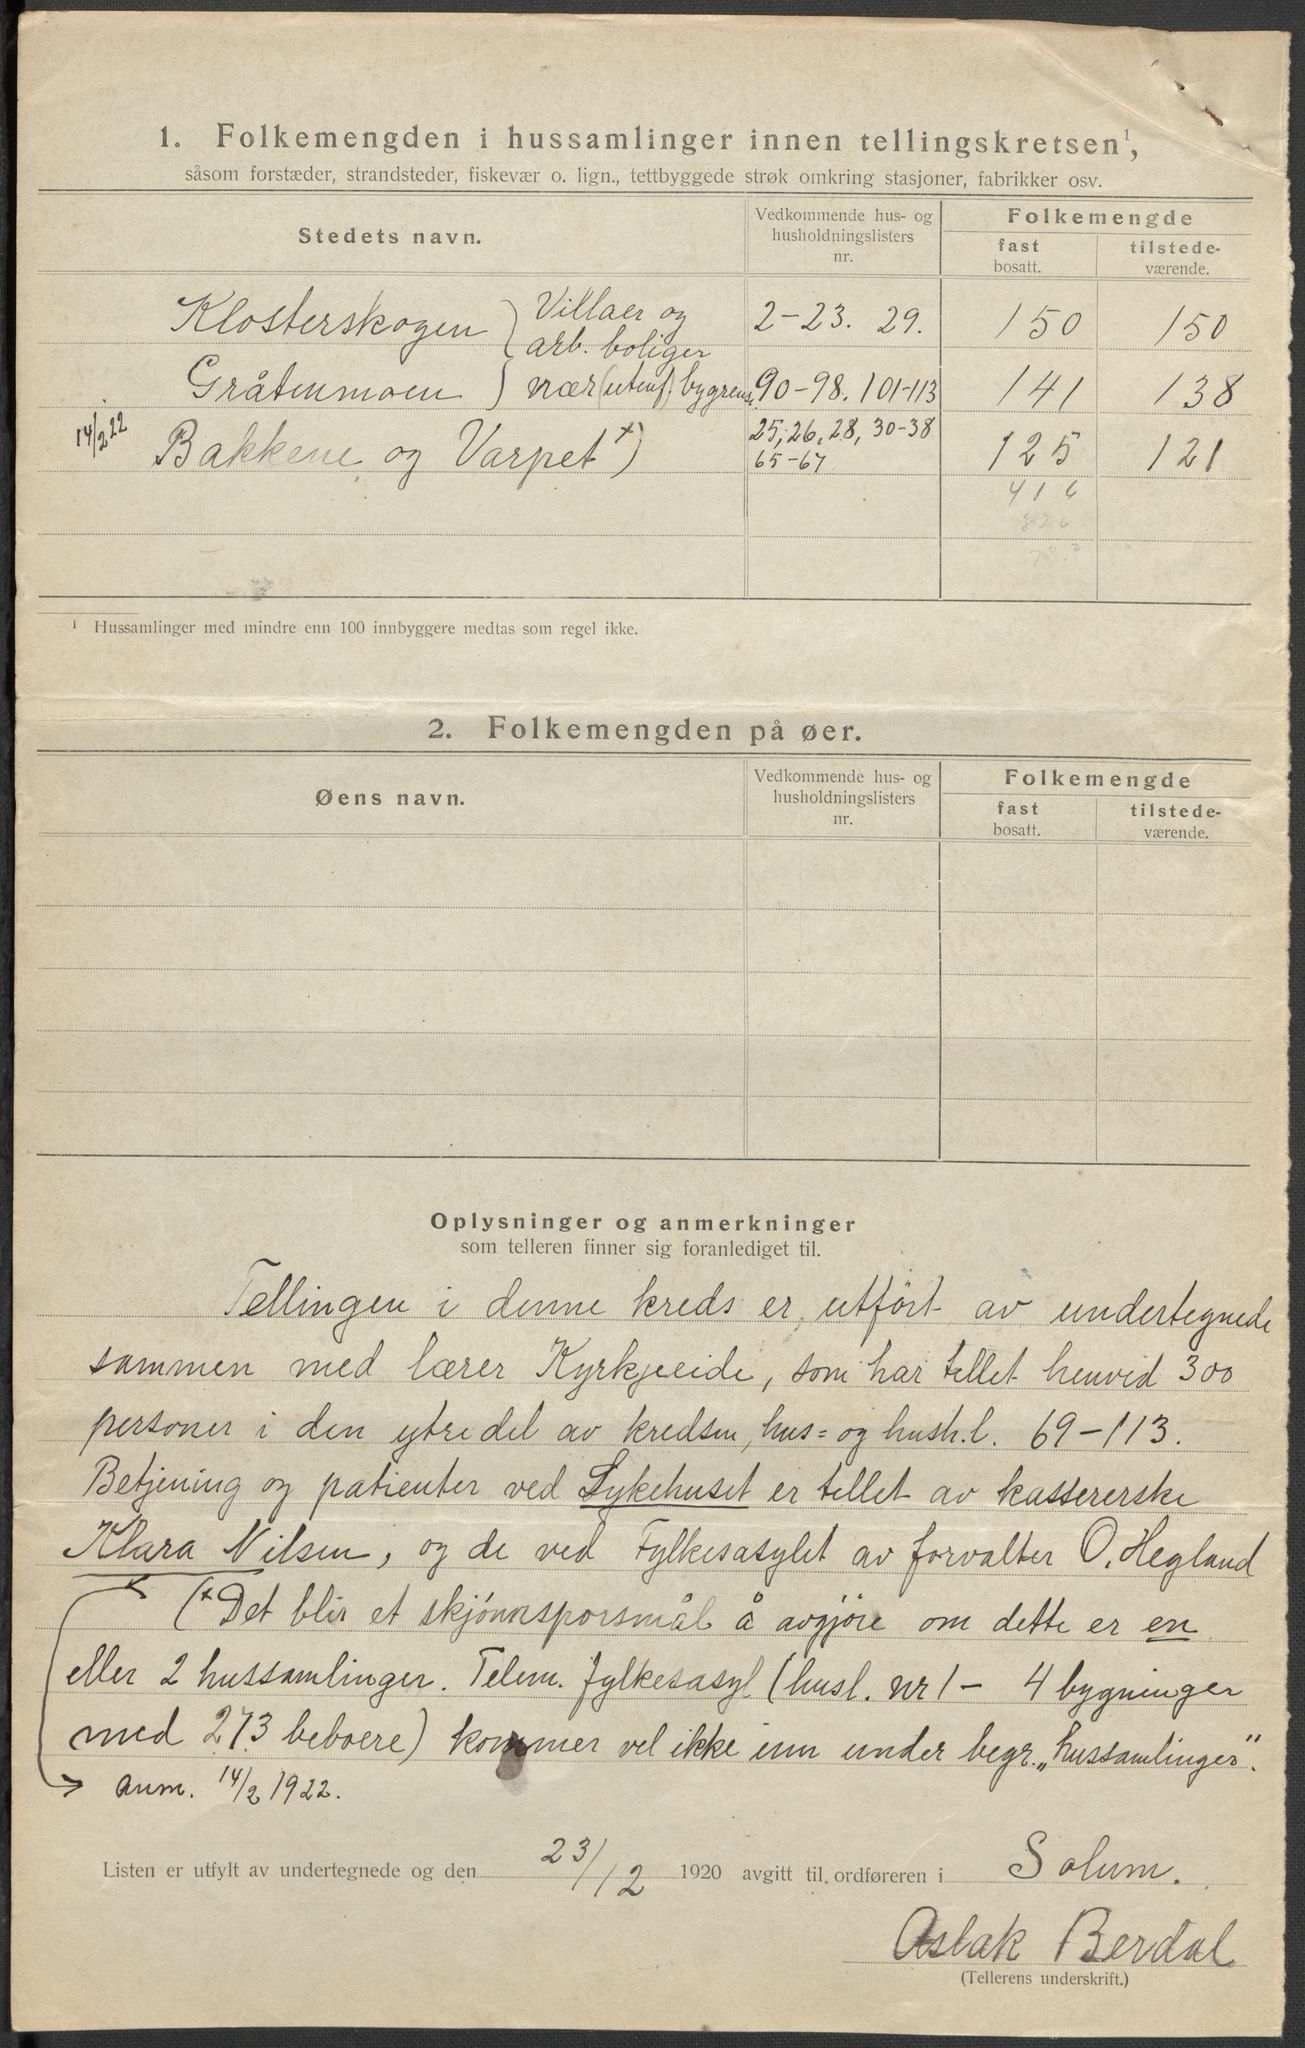 1. Folkemengden i hussamlinger innen tellingskretsen¹,
såsom forstæder, strandsteder, fiskevær o. lign., tettbyggede strøk omkring stasjoner, fabrikker osv.
Stedets navn.
Vedkommende hus- og husholdningslisters nr.
Folkemengde
fast bosatt.
tilstede-værende.
Klosterskogen ) Villaer og arb. boliger 2-23. 29. 150 150
Gråtenmoen ) nær (utenf.) bygrense 90-98. 101-113 141 138
14/2 22 Bakkene og Varpet +) 25, 26, 28, 30-38 65-67 125 121
416
¹ Hussamlinger med mindre enn 100 innbyggere medtas som regel ikke.
2. Folkemengden på øer.
Øens navn.
Vedkommende hus- og husholdningslisters nr.
Folkemengde
fast bosatt.
tilstede-værende.
Oplysninger og anmerkninger
som telleren finner sig foranlediget til.
Tellingen i denne kreds er utført av undertegnede
sammen med lærer Kyrkjeeide, som har tellet henved 300
personer i den ytre del av kredsen, hus= og hush.l. 69-113.
Betjening og patienter ved Sykehuset er tellet av kassererske
Klara Nilsen, og de ved Fylkesasylet av forvalter O. Hegland
(+ Det blir et skjønnsporsmål å avgjøre om dette er en
eller 2 hussamlinger. Telem. fylkesasyl (husl. nr 1 - 4 bygninger
med 273 beboere) kommer vel ikke inn under begr. „hussamlinger".
→ anm. 14/2 1922.
Listen er utfylt av undertegnede og den 23/12 1920 avgitt til ordføreren i Solum.
Aslak Berdal
(Tellerens underskrift.)